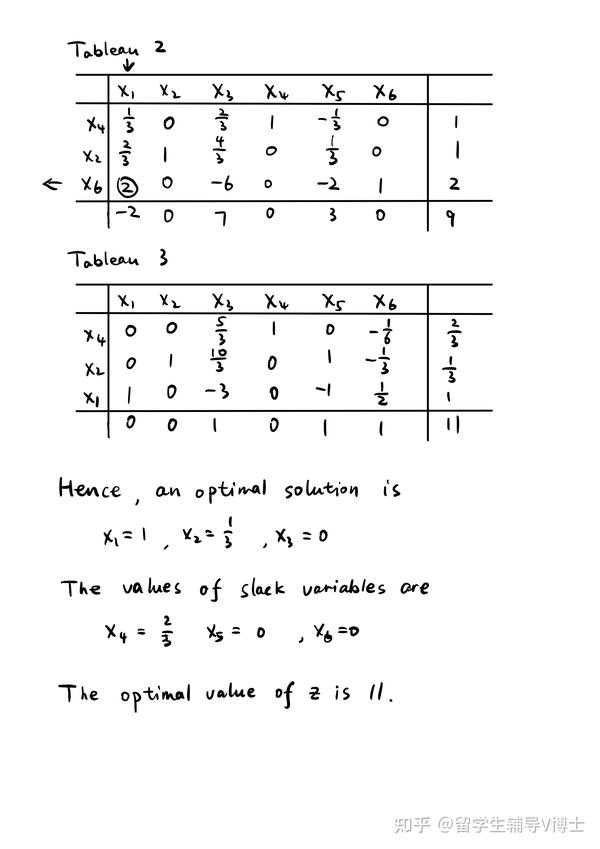 Tableau 2
x₁ x₂ x₃ x₄ x₅ x₆
x₄ 1/3 0 2/3 1 -1/3 0 1
x₂ 2/3 1 4/3 0 1/3 0 1
← x₆ 2 0 -6 0 -2 1 2
-2 0 7 0 3 0 9
Tableau 3
x₁ x₂ x₃ x₄ x₅ x₆
x₄ 0 0 5/3 1 0 -1/6 2/3
x₂ 0 1 10/3 0 1 -1/3 1/3
x₁ 1 0 -3 0 -1 1/2 1
0 0 1 0 1 1 11
Hence, an optimal solution is
x₁ = 1 , x₂ = 1/3 , x₃ = 0
The values of slack variables are
x₄ = 2/3 x₅ = 0 , x₆ = 0
The optimal value of z is 11.
知乎 @留学生辅导V博士